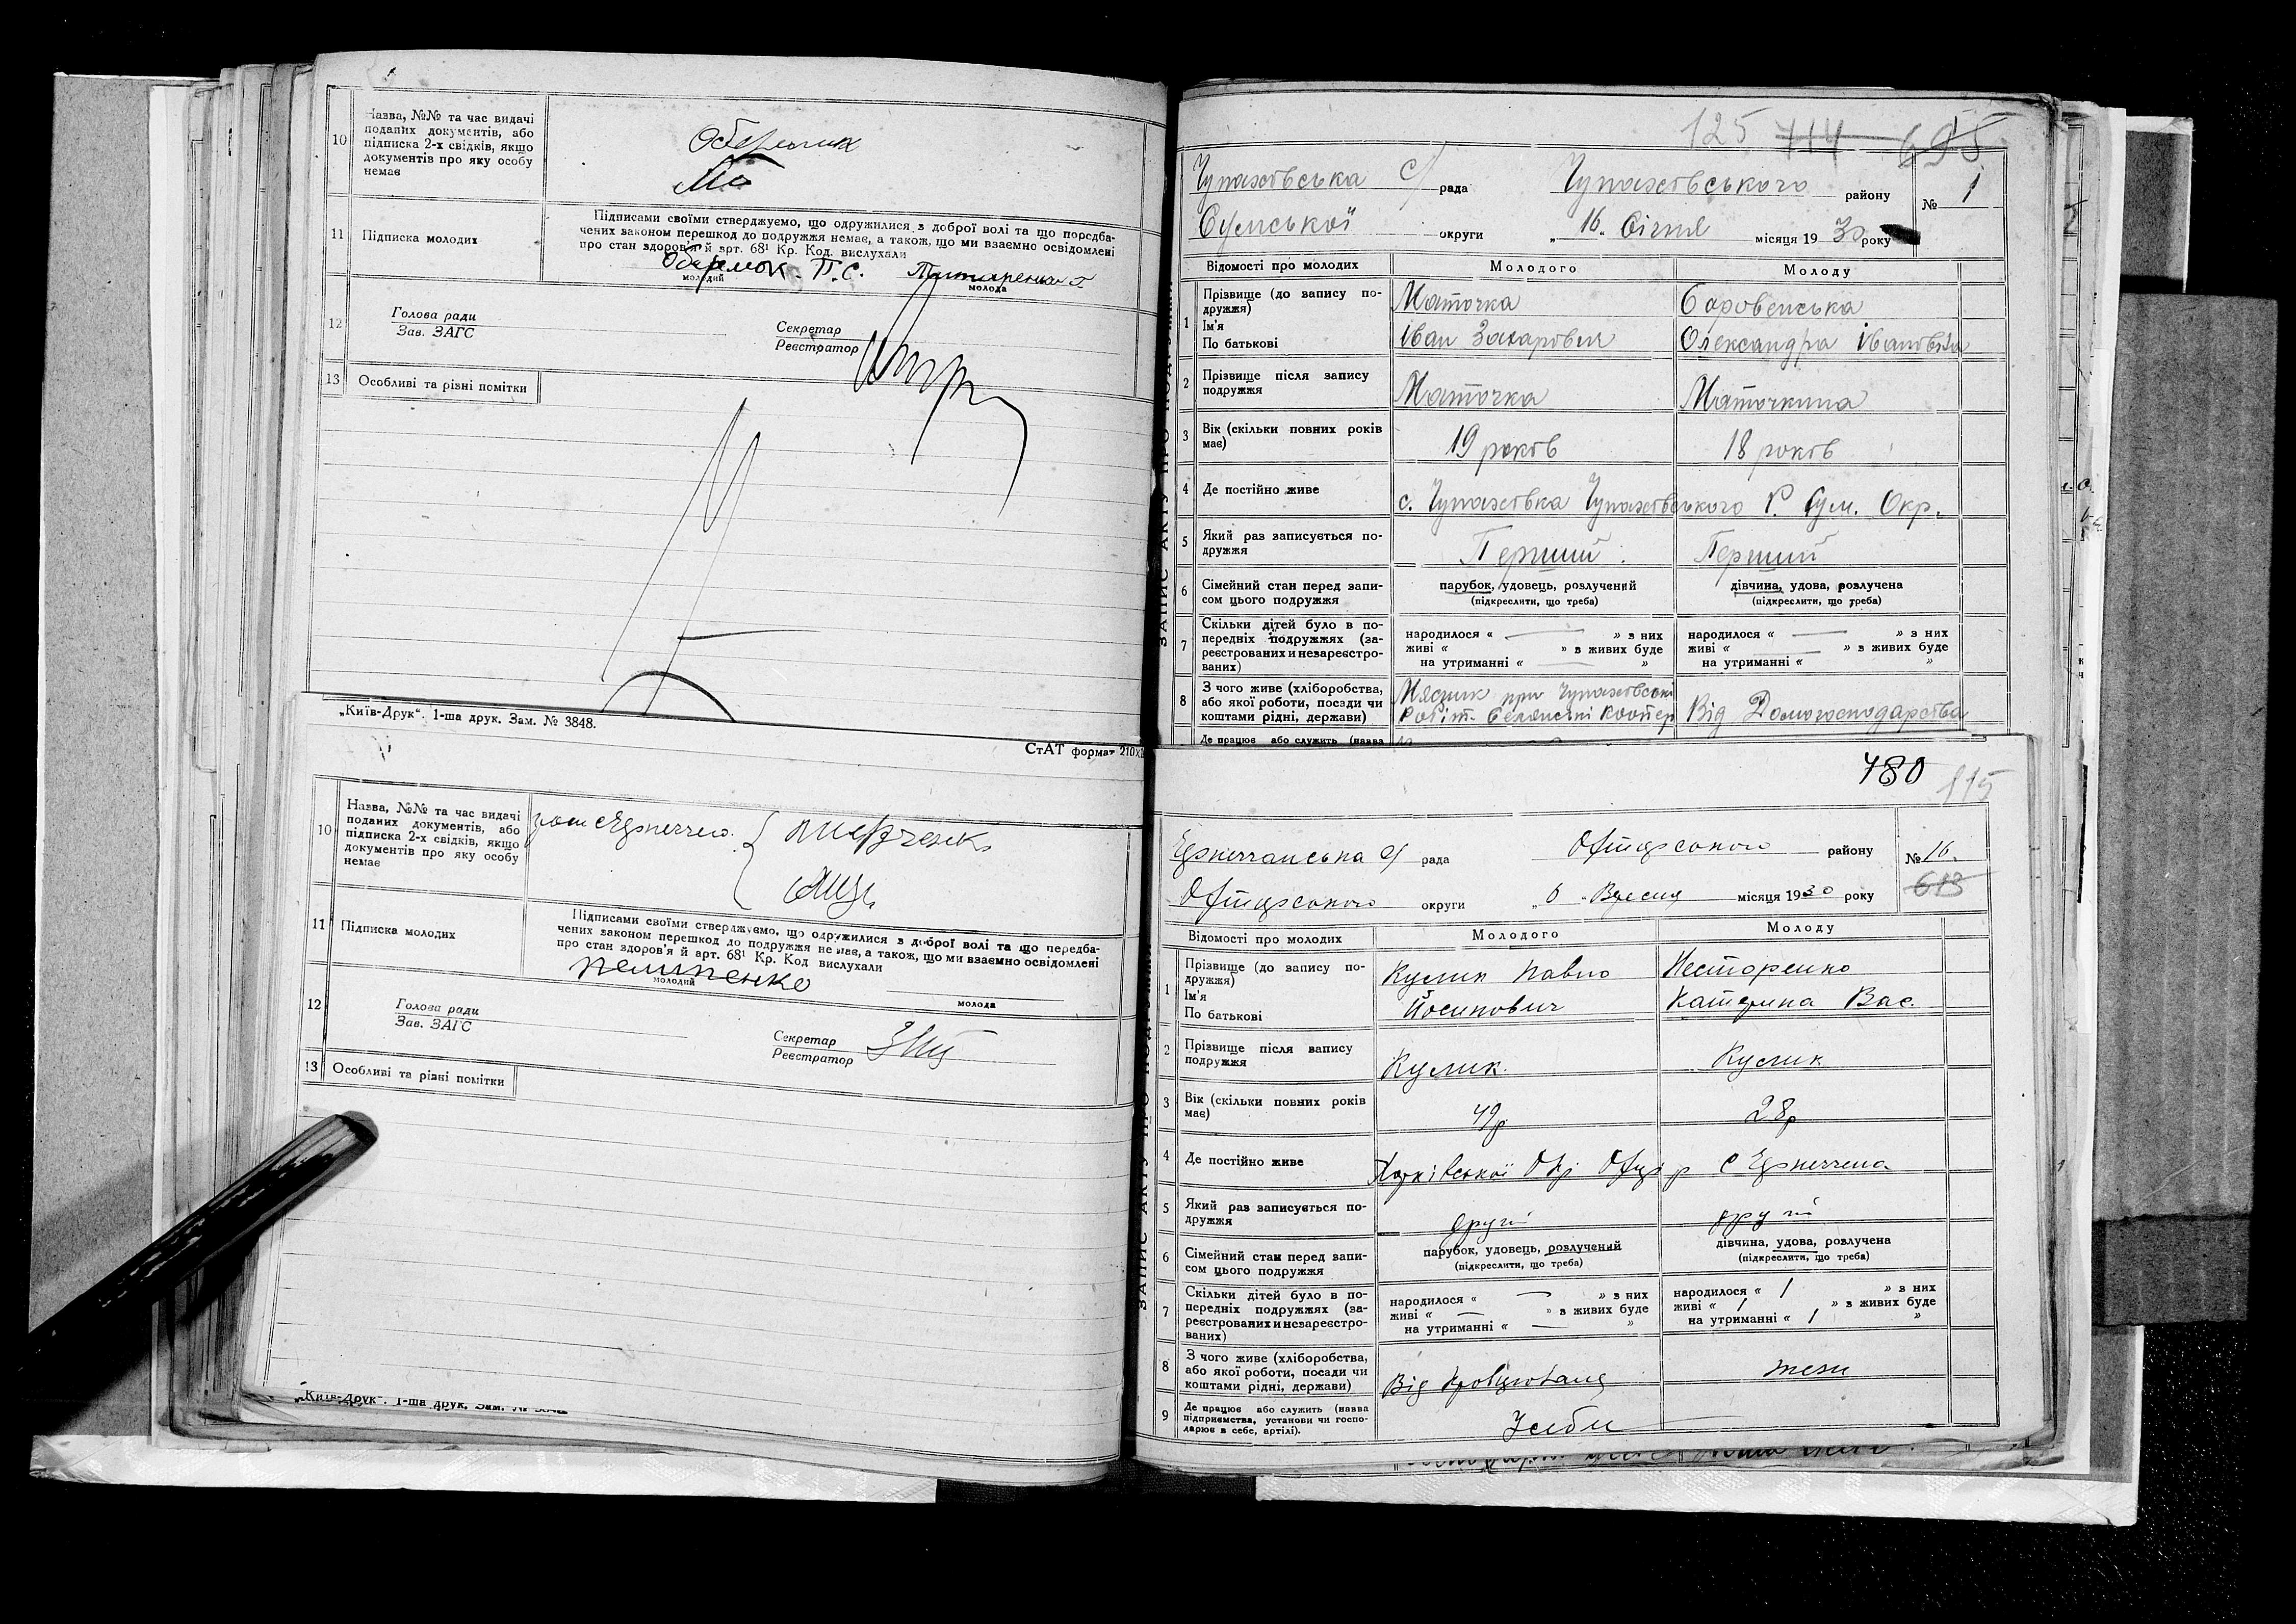 10
Назва, №№ та час видачі
поданих документів, або
підписка 2-х свідків, якщо
документів про яку особу
немає
11
Підписка молодих
Підписами своїми стверджуємо, що одружилися з доброї волі та що передба-
чених законом перешкод до подружжя немає, а також, що ми взаємно освідомлені
про стан здоров'я й арт. 68¹ Кр. Код. вислухали
Оберемок П.С.
молодий
молода
12
Голова ради
Зав. ЗАГС
Секретар
Реєстратор
13
Особливі та різні помітки
„Київ-Друк“. 1-ша друк. Зам. № 3848.
СтАТ формат 210х
10
Назва, №№ та час видачі
поданих документів, або
підписка 2-х свідків, якщо
документів про яку особу
немає
11
Підписка молодих
Підписами своїми стверджуємо, що одружилися з доброї волі та що передба-
чених законом перешкод до подружжя немає, а також, що ми взаємно освідомлені
про стан здоров'я й арт. 68¹ Кр. Код вислухали
пелипенко
молодий
молода
12
Голова ради
Зав. ЗАГС
Секретар
Реєстратор
13
Особливі та різні помітки
„Київ-Друк“. 1-ша друк. Зам. №
125 714 695
Чупахівська С/ рада Чупахівського району № 1
Сумської округи „16„ Січня місяця 1930 року
Відомості про молодих Молодого Молоду
1
Прізвище (до запису по-
дружжя) Маточка Боровенська
Ім'я
По батькові Іван Захарович Олександра Івановна
2
Прізвище після запису
подружжя Маточка Маточкина
3
Вік (скільки повних років
має) 19 років 18 років
4
Де постійно живе с. Чупахівка Чупахівського Р. Сум. Окр.
5
Який раз записується по-
дружжя Перший Перший
6
Сімейний стан перед запи-
сом цього подружжя
парубок, удовець, розлучений
(підкреслити, що треба)
дівчина, удова, розлучена
(підкреслити, що треба)
7
Скільки дітей було в по-
передніх подружжях (за-
реєстрованих и незареєстро-
ваних)
народилося « — » з них
живі « » з живих буде
на утриманні « — »
народилося « — » з них
живі « — » з живих буде
на утриманні « »
8
З чого живе (хліборобства,
або якої роботи, посади чи
коштами рідні, держави)
Мясник при Чупахівські
Робіт. Селянські коопер
Від Домогосподарства
Де працює або служить (назва
780 115
рада району № 16.
613
округи „6„ Вресня місяця 1930 року
Відомості про молодих Молодого Молоду
1
Прізвище (до запису по-
дружжя) Кулик Павло Несторенко
Ім'я
По батькові Йосипович Катерина Вас.
2
Прізвище після запису
подружжя Кулик. Кулик
3
Вік (скільки повних років
має) 49р 28р
4
Де постійно живе Харківської Окр
5
Який раз записується по-
дружжя другі другі
6
Сімейний стан перед запи-
сом цього подружжя
парубок, удовець, розлучений
(підкреслити, що треба)
дівчина, удова, розлучена
(підкреслити, що треба)
7
Скільки дітей було в по-
передніх подружжях (за-
реєстрованих и незареєстро-
ваних)
народилося « — » з них
живі « — » з живих буде
на утриманні « — »
народилося « 1 » з них
живі « 1 » з живих буде
на утриманні « 1 »
8
З чого живе (хліборобства,
або якої роботи, посади чи
коштами рідні, держави)
Від
теж
9
Де працює або служить (назва
підприємства, установи чи госпо-
дарює в себе, артілі).
Усебе